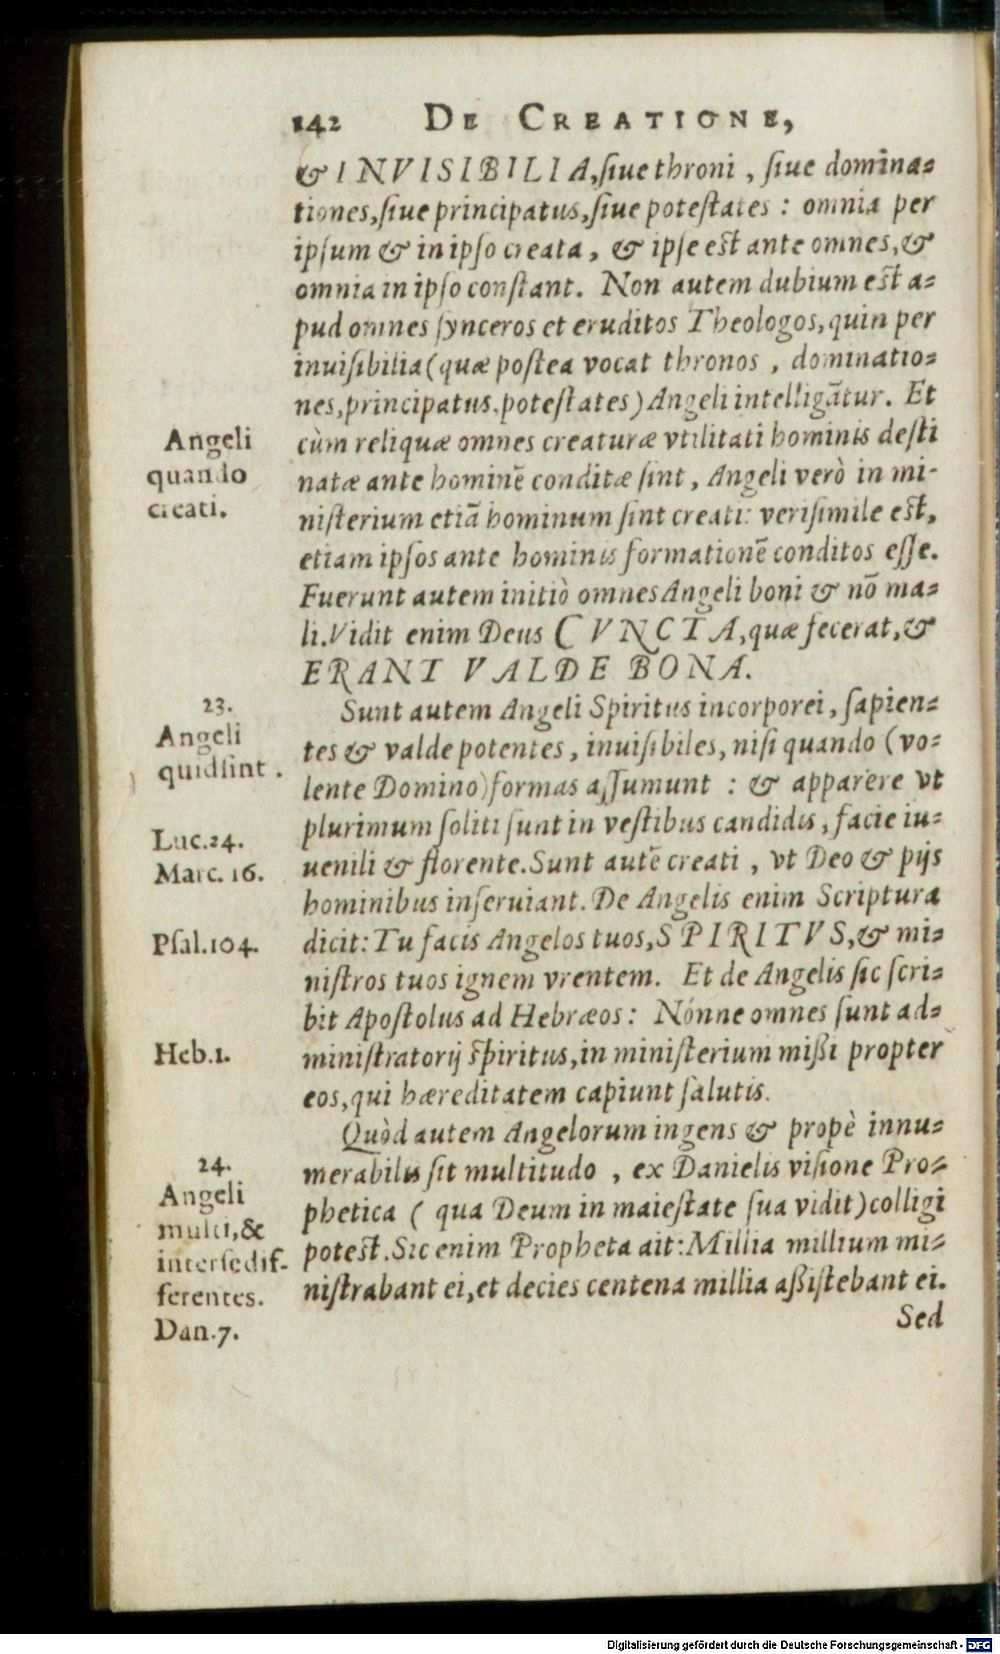 142 DE CREATIONE,
& INVISIBILIA, ſiue throni, ſiue domina-
tiones, ſiue principatus, ſiue poteſtates: omnia per
ipſum & in ipſo creata, & ipſe eſt ante omnes, &
omnia in ipſo conſtant. Non autem dubium eſt a-
pud omnes ſynceros et eruditos Theologos, quin per
inuiſibilia (quæ poſtea vocat thronos, dominatio-
nes, principatus, poteſtates) Angeli intelligātur. Et
cùm reliquæ omnes creaturæ vtilitati hominis deſti
natæ ante hominē conditæ ſint, Angeli verò in mi-
niſterium etiā hominum ſint creati: veriſimile eſt,
etiam ipſos ante hominis formationē conditos eſſe.
Fuerunt autem initiò omnes Angeli boni & nō ma-
li. Vidit enim Deus CVNCTA, quæ fecerat, &
ERANT VALDE BONA.
Sunt autem Angeli Spiritus incorporei, ſapien-
tes & valde potentes, inuiſibiles, niſi quando (vo-
lente Domino) formas aſſumunt: & apparere vt
plurimum ſoliti ſunt in veſtibus candidis, facie iu-
uenili & florente. Sunt autē creati, vt Deo & pijs
hominibus inſeruiant. De Angelis enim Scriptura
dicit: Tu facis Angelos tuos, SPIRITVS, & mi-
niſtros tuos ignem vrentem. Et de Angelis ſic ſcri-
bit Apoſtolus ad Hebræos: Nónne omnes ſunt ad-
miniſtratorij ſpiritus, in miniſterium miſſi propter
eos, qui hæreditatem capiunt ſalutis.
Quòd autem Angelorum ingens & propè innu-
merabilis ſit multitudo, ex Danielis viſione Pro-
phetica (qua Deum in maieſtate ſua vidit) colligi
poteſt. Sic enim Propheta ait: Millia millium mi-
niſtrabant ei, et decies centena millia aſſiſtebant ei.
Sed
Angeli
quando
creati.
23.
Angeli
quid ſint.
Luc. 24.
Marc. 16.
Pſal. 104.
Heb. 1.
24.
Angeli
multi, &
inter ſe dif-
ferentes.
Dan. 7.
Digitalisierung gefördert durch die Deutsche Forschungsgemeinschaft - DFG